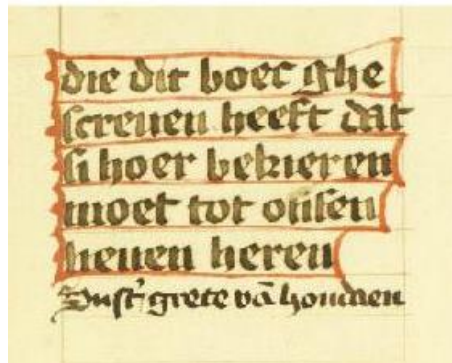 die dit boec ghe
screuen heeft dat
si hoer bekieren
moet tot onsen
lieuen heren
Sust' grete vā